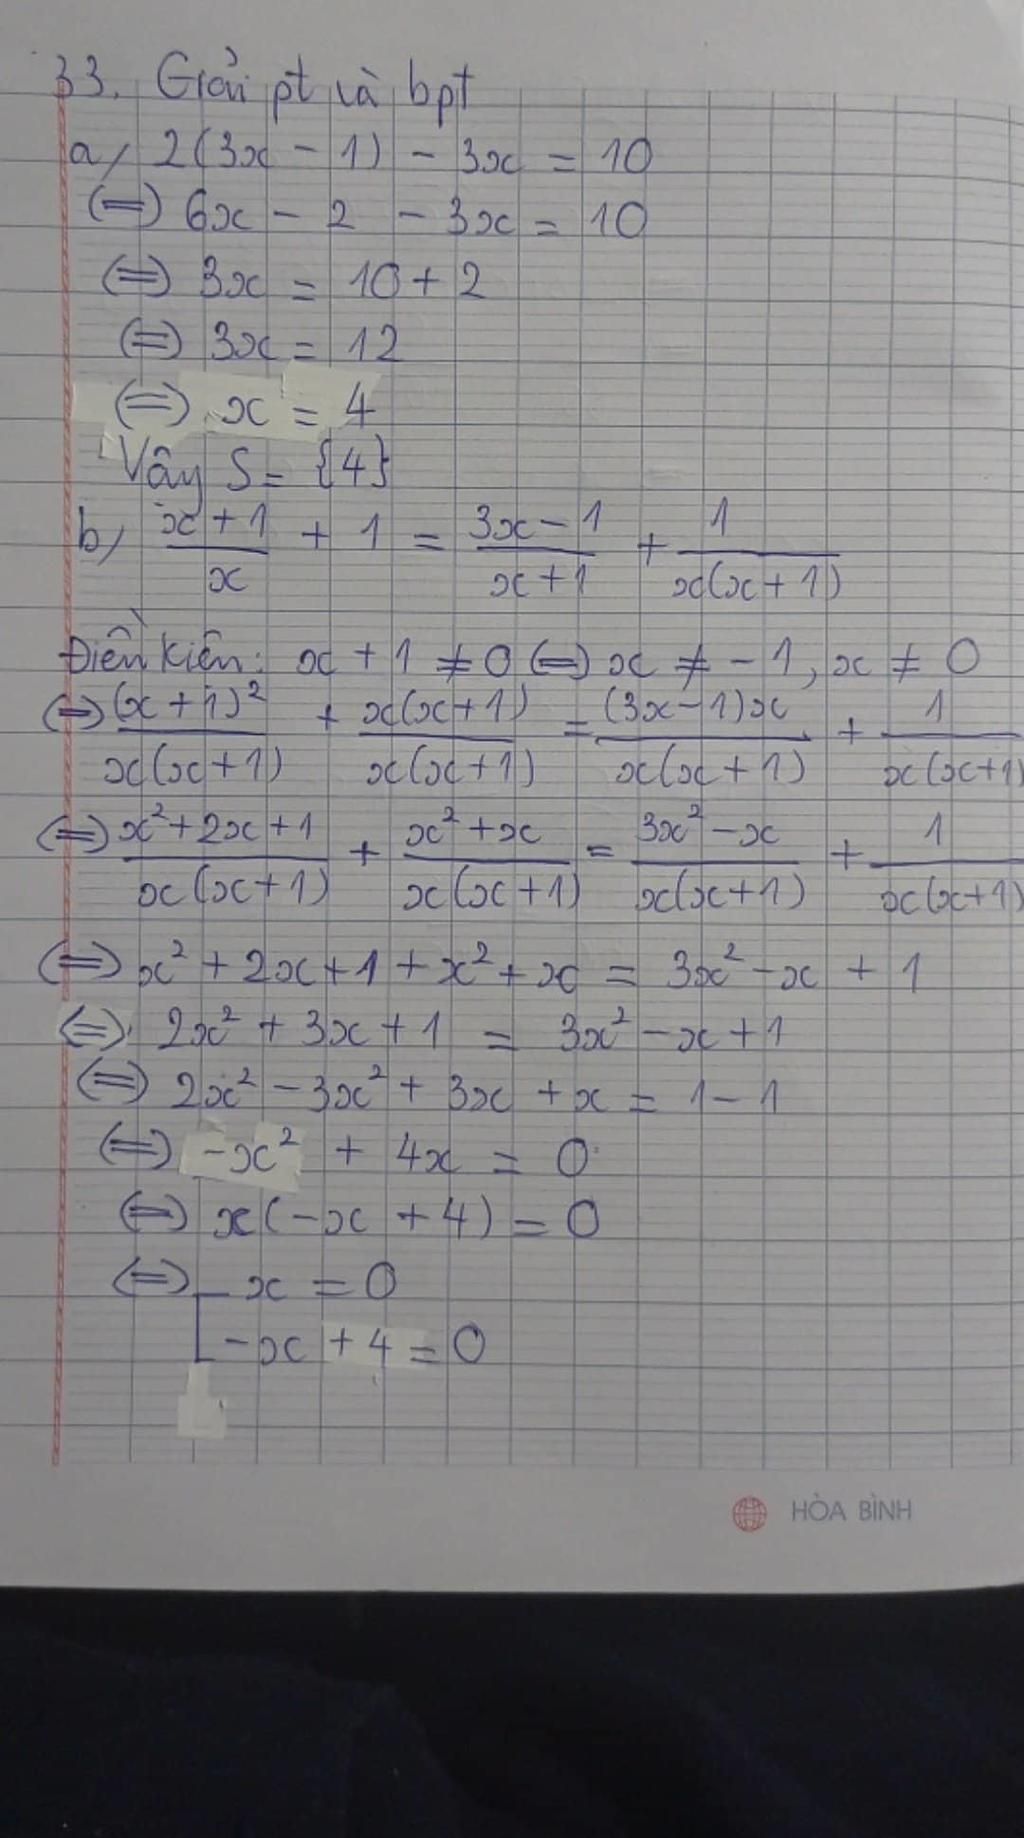 33. Giải pt và bpt
a, 2(3x - 1) - 3x = 10
(=) 6x - 2 - 3x = 10
(=) 3x = 10 + 2
(=) 3x = 12
(=) x = 4
Vây S = {4}
b, (x + 1)/x + 1 = (3x - 1)/(x + 1) + 1/(x(x + 1))
Điền kiên: x + 1 ≠ 0 (=) x ≠ -1, x ≠ 0
(=) (x + 1)²/(x(x + 1)) + x(x + 1)/(x(x + 1)) = (3x - 1)x/(x(x + 1)) + 1/(x(x + 1))
(=) (x² + 2x + 1)/(x(x + 1)) + (x² + x)/(x(x + 1)) = (3x² - x)/(x(x + 1)) + 1/(x(x + 1))
(=) x² + 2x + 1 + x² + x = 3x² - x + 1
(=) 2x² + 3x + 1 = 3x² - x + 1
(=) 2x² - 3x² + 3x + x = 1 - 1
(=) -x² + 4x = 0
(=) x(-x + 4) = 0
(=) [ x = 0
-x + 4 = 0
HÒA BÌNH